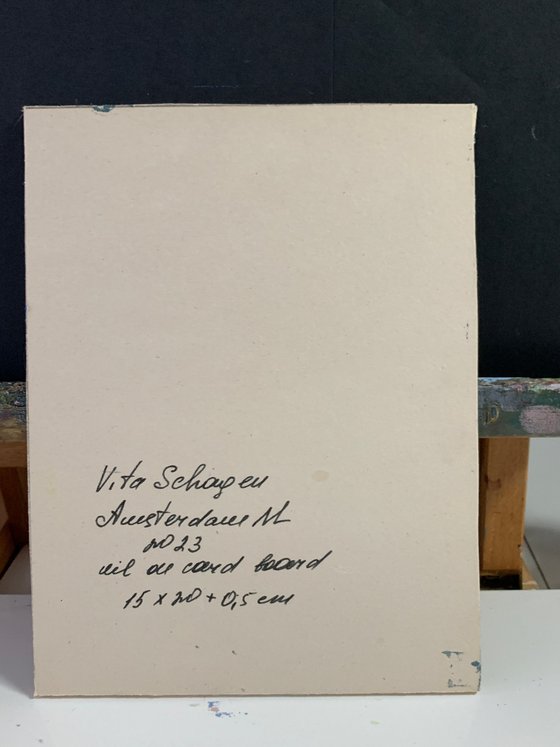 Vita Schagen
Amsterdam NL
2023
oil on card board
15 x 20 + 0,5 cm